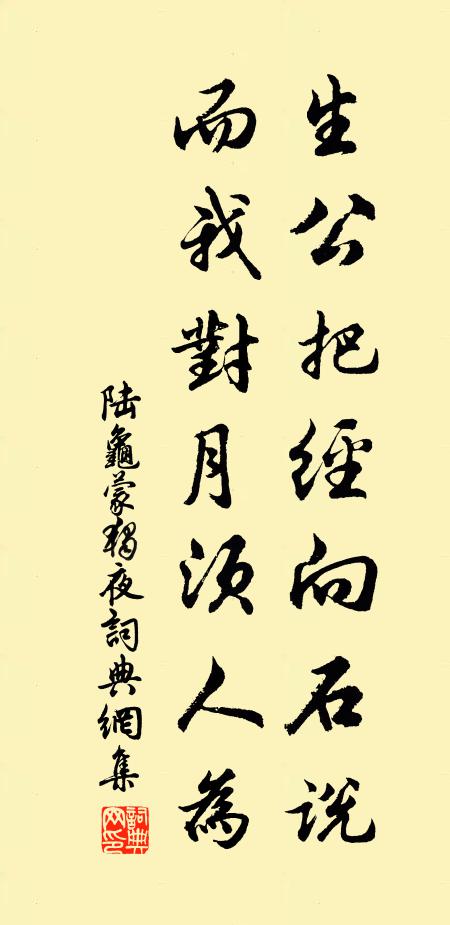 生公把經向石說
而我對月須人為
陆龜蒙獨夜詞典網集
詞典
网印